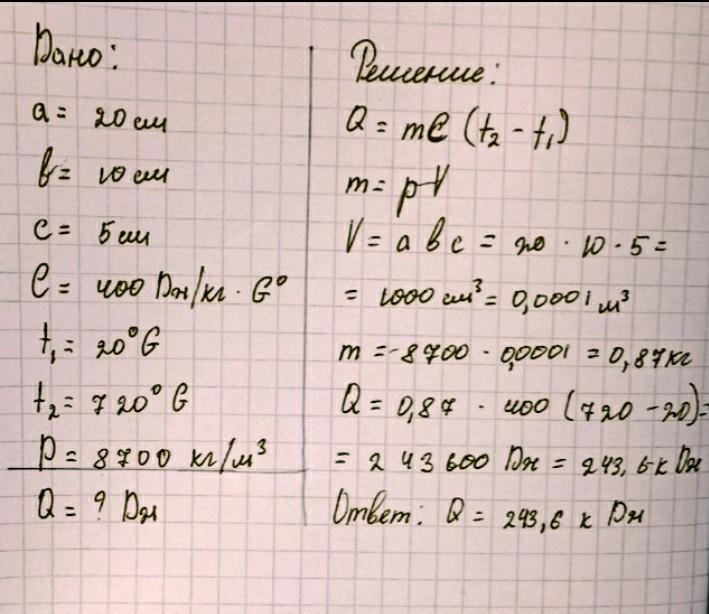 Дано:
a = 20 см
b = 10 см
c = 5 см
C = 400 Дж/кг · G°
t₁ = 20° G
t₂ = 720° G
P = 8700 кг/м³
Q = ? Дж
Решение:
Q = mC (t₂ - t₁)
m = pV
V = a b c = 20 · 10 · 5 =
= 1000 см³ = 0,0001 м³
m = 8700 · 0,0001 = 0,87кг
Q = 0,87 · 400 (720 - 20) =
= 243 600 Дж = 243,6 к Дж
Ответ: Q = 243,6 к Дж